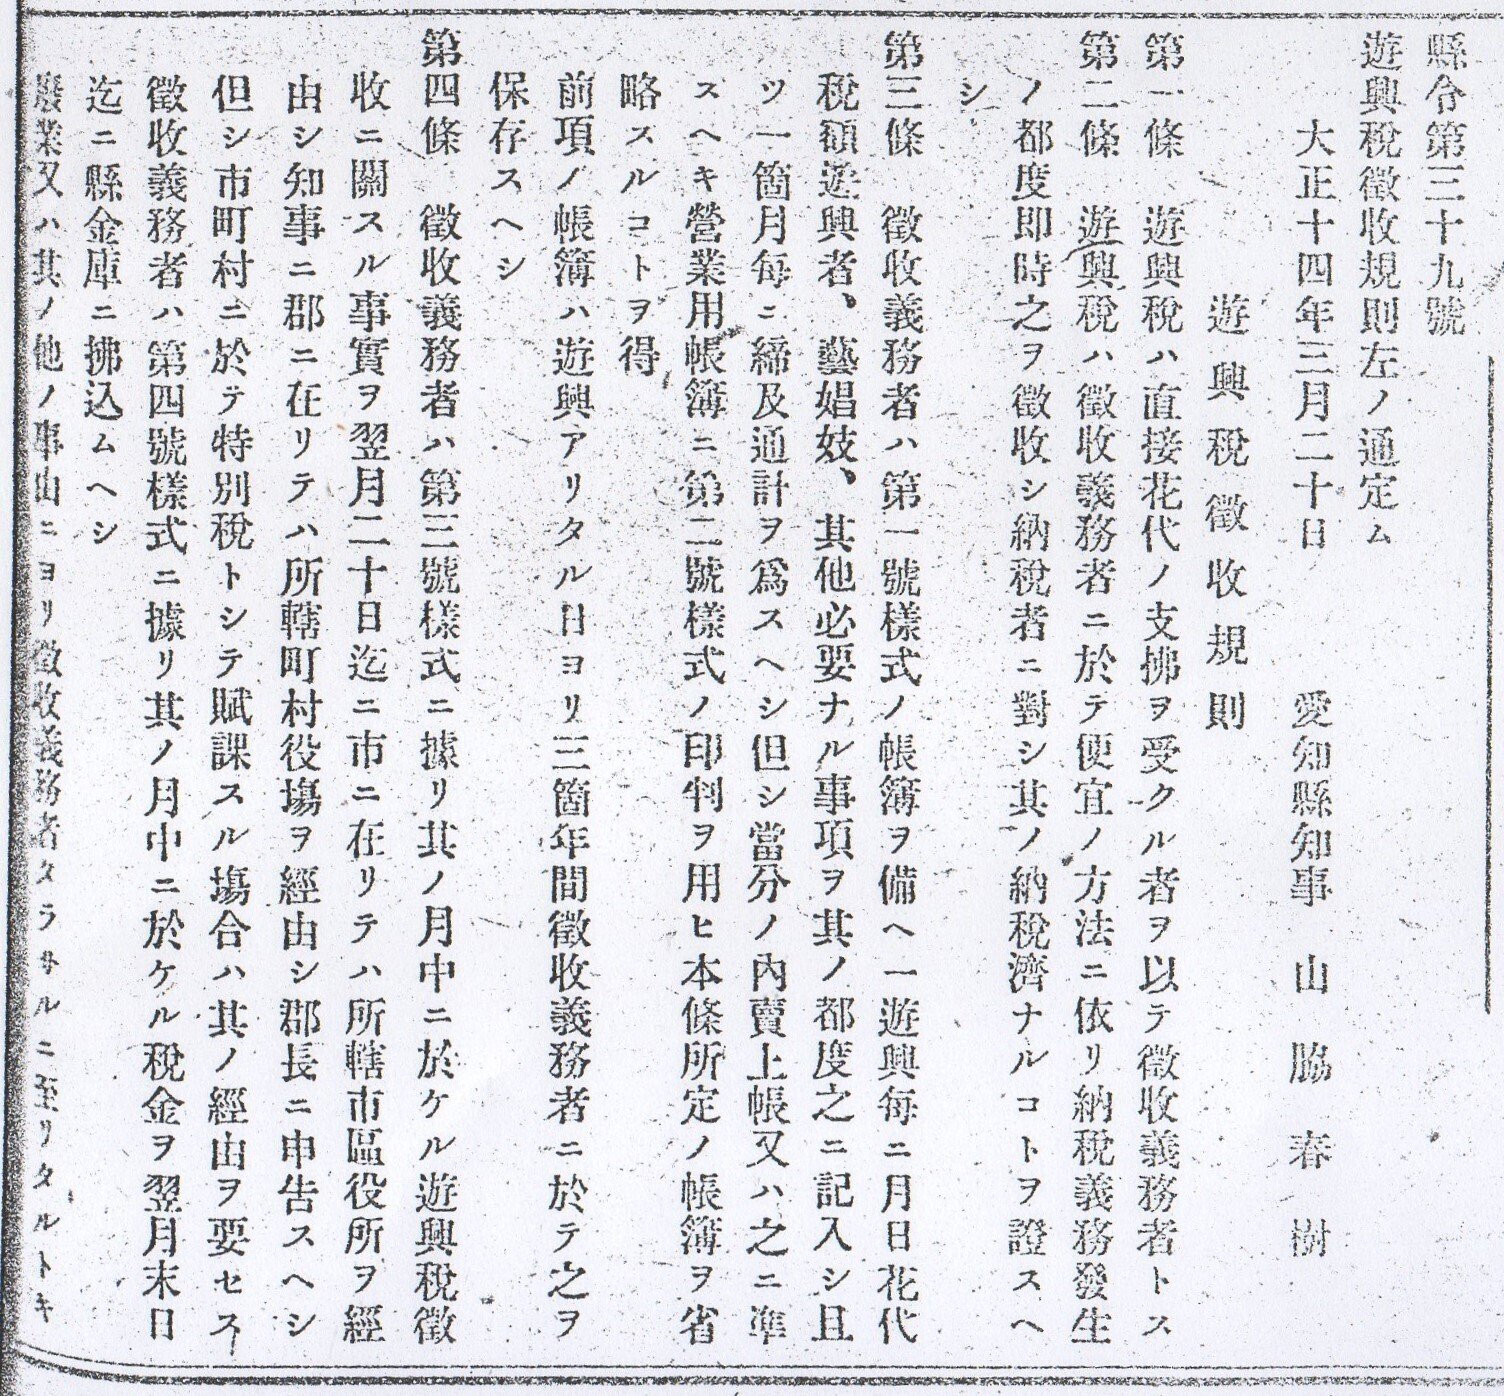 縣令第三十九號
遊興稅徵收規則左ノ通定ム
大正十四年三月二十日　　　愛知縣知事　山脇春樹
遊興稅徵收規則
第一條　遊興稅ハ直接花代ノ支拂ヲ受クル者ヲ以テ徵收義務者トス
第二條　遊興稅ハ徵收義務者ニ於テ便宜ノ方法ニ依リ納稅義務發生
ノ都度卽時之ヲ徵收シ納稅者ニ對シ其ノ納稅濟ナルコトヲ證スヘ
シ
第三條　徵收義務者ハ第一號樣式ノ帳簿ヲ備ヘ一遊興每ニ月日花代
稅額遊興者、藝娼妓、其他必要ナル事項ヲ其ノ都度之ニ記入シ且
ツ一箇月每ニ締及通計ヲ爲スヘシ但シ當分ノ內賣上帳又ハ之ニ準
スヘキ營業用帳簿ニ第二號樣式ノ印判ヲ用ヒ本條所定ノ帳簿ヲ省
略スルコトヲ得
前項ノ帳簿ハ遊興アリタル日ヨリ三箇年間徵收義務者ニ於テ之ヲ
保存スヘシ
第四條　徵收義務者ハ第三號樣式ニ據リ其ノ月中ニ於ケル遊興稅徵
收ニ關スル事實ヲ翌月二十日迄ニ市ニ在リテハ所轄市區役所ヲ經
由シ知事ニ郡ニ在リテハ所轄町村役塲ヲ經由シ郡長ニ申告スヘシ
但シ市町村ニ於テ特別稅トシテ賦課スル塲合ハ其ノ經由ヲ要セス
徵收義務者ハ第四號樣式ニ據リ其ノ月中ニ於ケル稅金ヲ翌月末日
迄ニ縣金庫ニ拂込ムヘシ
廢業又ハ其ノ他ノ事由ニヨリ徵收義務者タラサルニ至リタルトキ